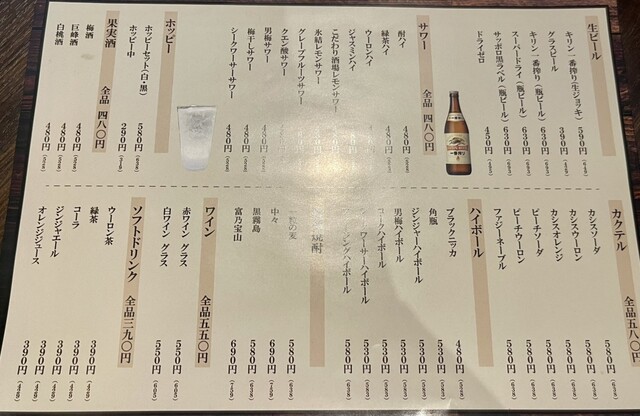 生ビール
キリン一番搾り(生ジョッキ) 590円
グラスビール 390円
キリン一番搾り(瓶ビール) 630円
スーパードライ(瓶ビール) 630円
サッポロ黒ラベル(瓶ビール) 630円
ドライゼロ 450円
サワー 全品 四八〇円
酎ハイ 480円
緑茶ハイ 480円
ウーロンハイ 480円
ジャスミンハイ 480円
こだわり酒場レモンサワー
氷結レモンサワー
グレープフルーツサワー
クエン酸サワー 480円
男梅サワー 480円
梅干しサワー 480円
シークワーサーサワー 480円
ホッピー
ホッピーセット(白・黒) 580円
ホッピー中 290円
果実酒 全品 四八〇円
梅酒 480円
巨峰酒 480円
白桃酒 480円
カクテル 全品 五八〇円
カシスソーダ 580円
カシスウーロン 580円
カシスオレンジ 580円
ピーチソーダ 580円
ピーチウーロン 580円
ファジーネーブル 580円
ハイボール
ブラックニッカ 480円
角瓶 530円
ジンジャーハイボール 530円
男梅ハイボール 530円
コークハイボール 530円
ワーサーハイボール
ングハイボール 580円
焼酎
の麦 580円
中々 690円
黒霧島 580円
富乃宝山 690円
ワイン 全品 五五〇円
赤ワイン グラス 550円
白ワイン グラス 550円
ソフトドリンク 全品 三九〇円
ウーロン茶 390円
緑茶 390円
コーラ 390円
ジンジャエール 390円
オレンジジュース 390円